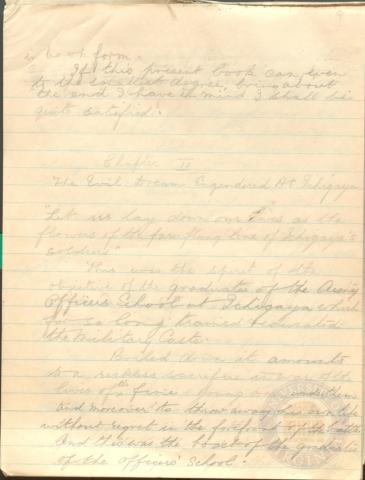 in book form.
If this present book can even
to the smallest degree, bring about
the end I have in mind I shall be
quite satisfied.
Chapter II
The Evil Dream Engendered At Ichigaya
"Let us lay down our lives as the
flowers of the far flung line of Ichigaya's
soldiers"
This was the spirit of the
objective of the graduates of the Army
Officers School at Ichigaya which
for so long trained & educated
the Military Caste.
Boiled down it amounts
to a reckless sacrifice in war of the
lives of the young
and moreover to throw away his own life
without regret in the forefront of the battle
And this was the boast of the graduates
of the Officers' School.